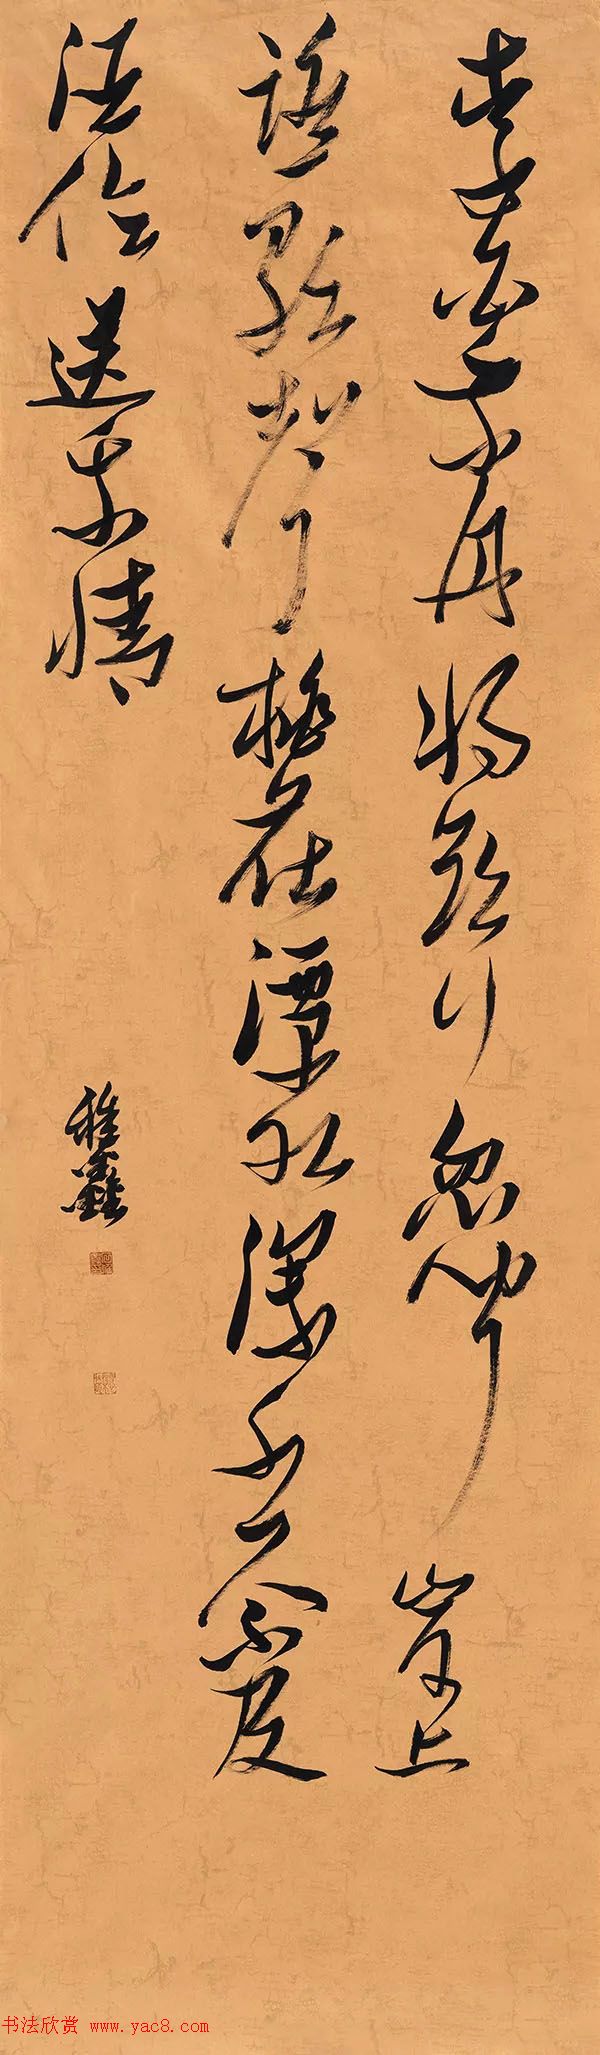 李白乘舟將欲行忽聞岸上
踏歌聲桃花潭水深千尺不及
汪倫送我情
鑫
书法欣赏 www.yac8.com